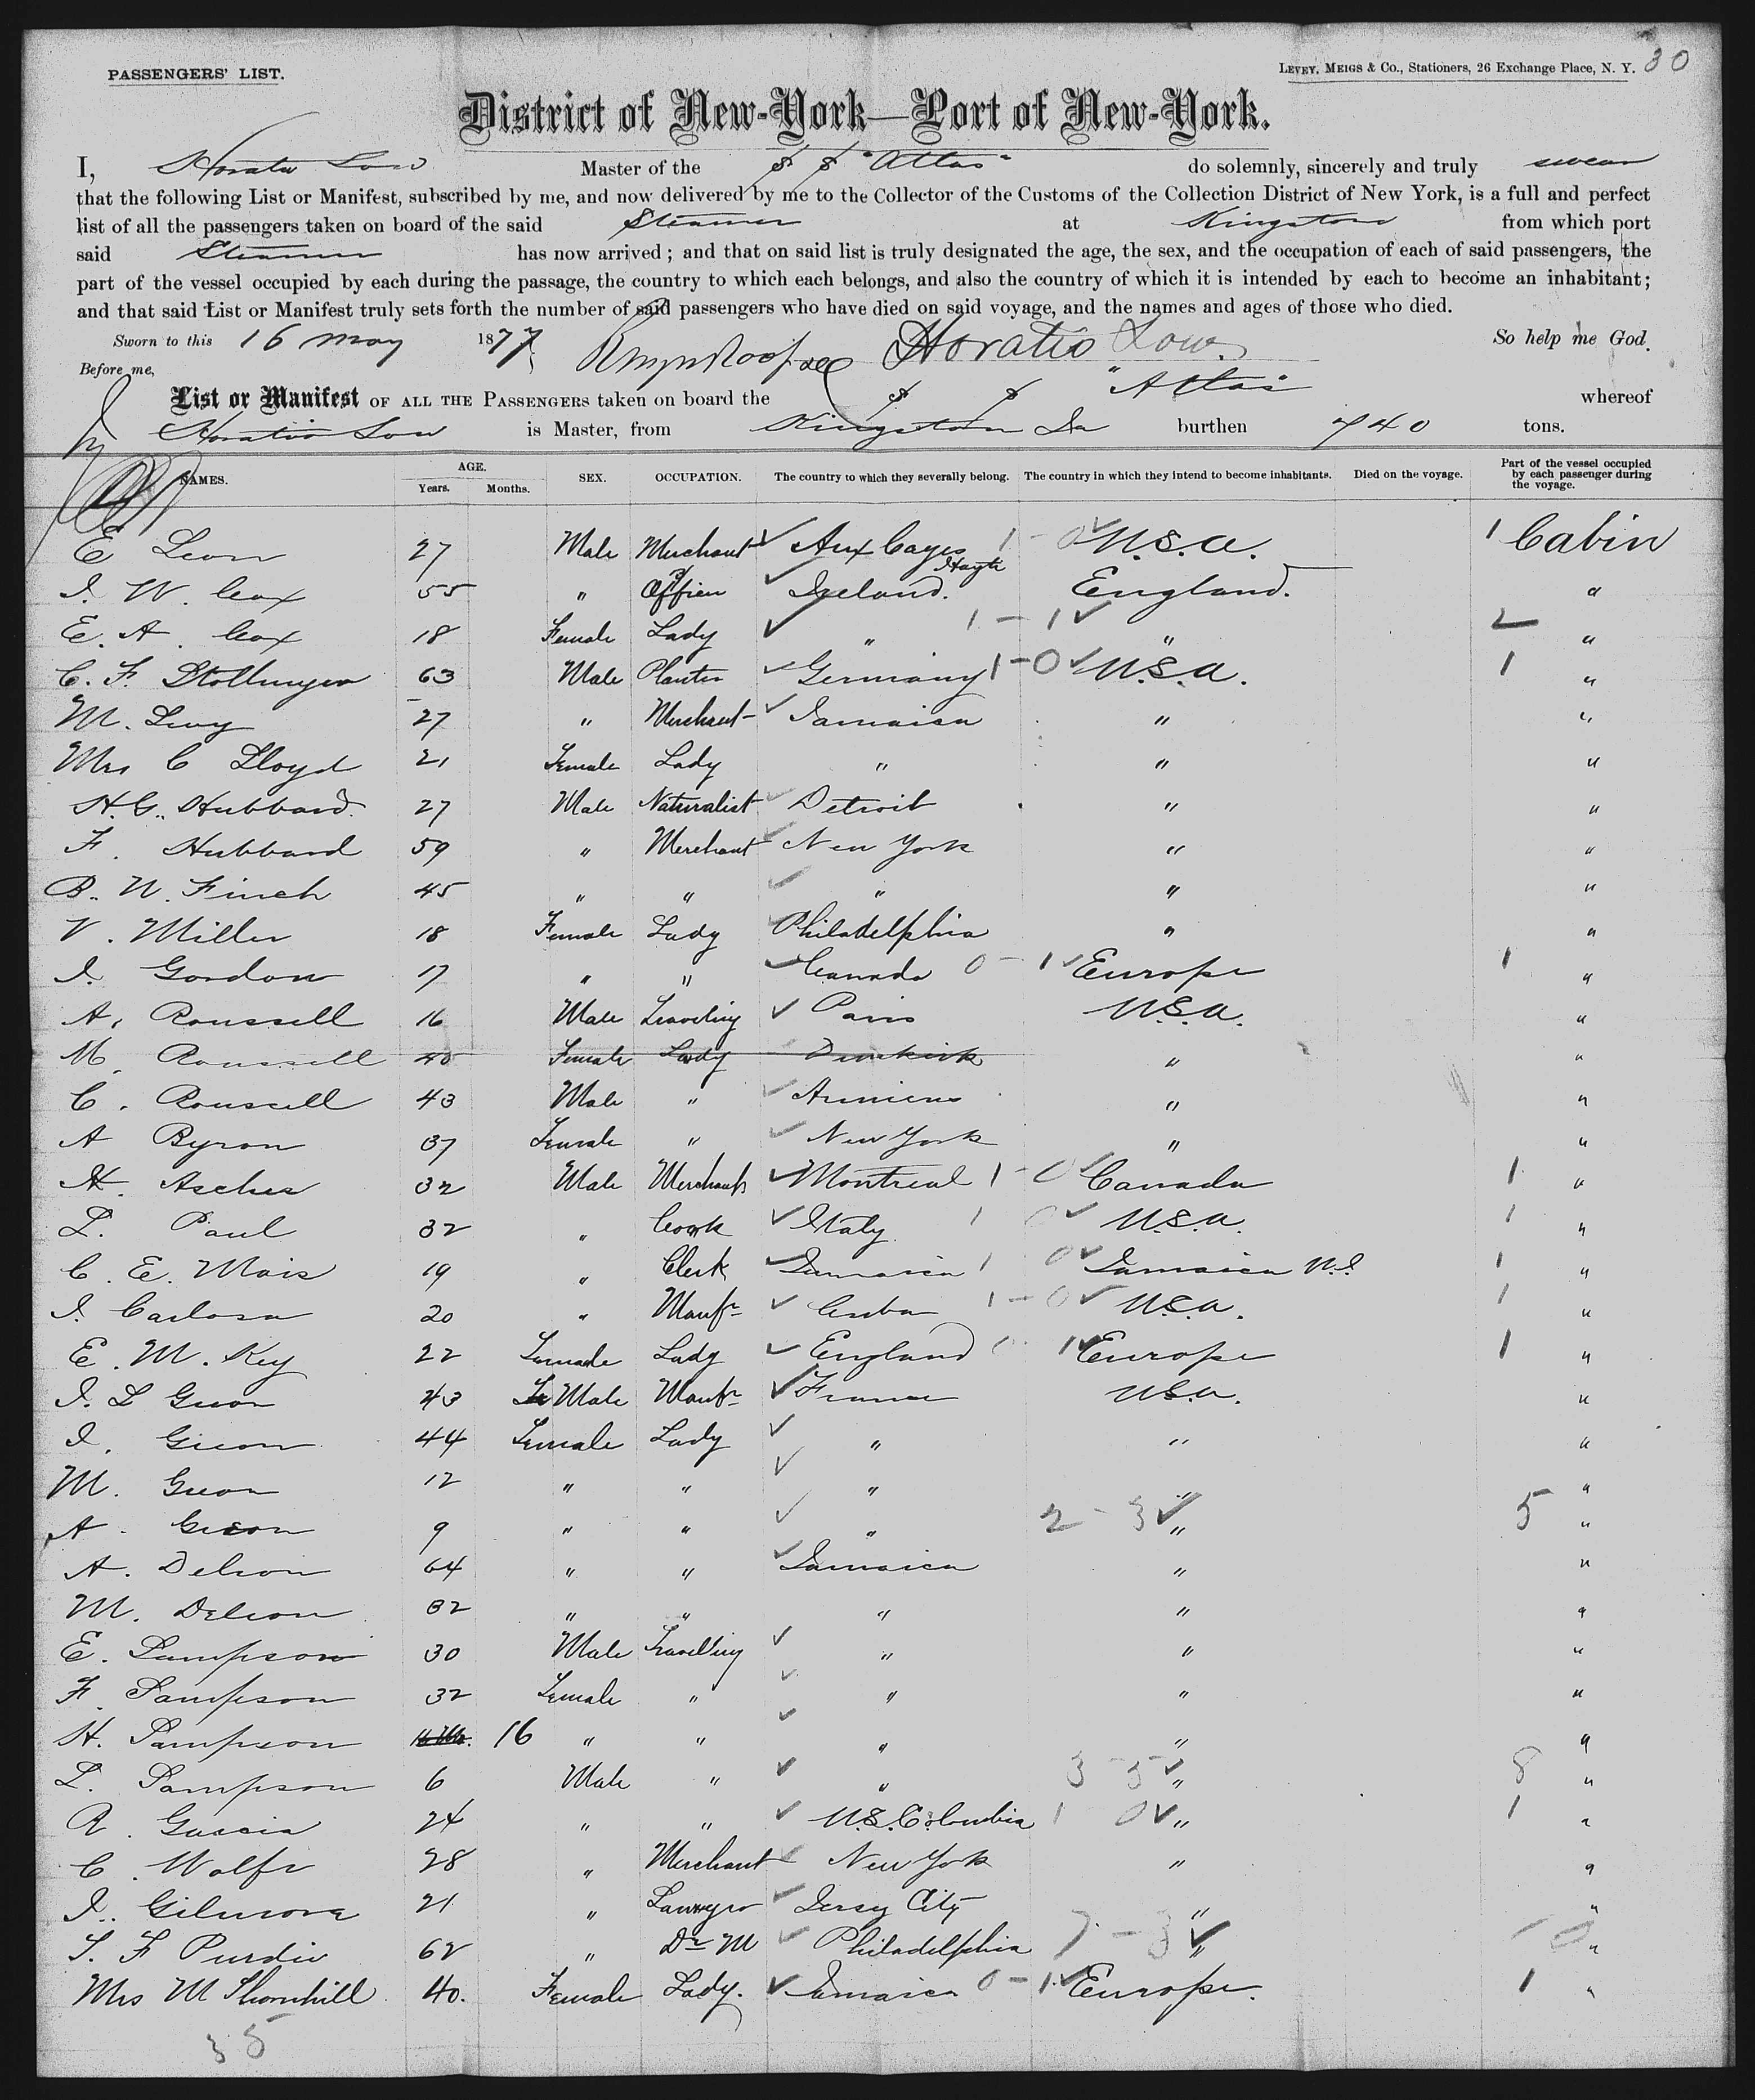 30
PASSENGERS' LIST.
LEVEY, MEIGS & CO., Stationers, 26 Exchange Place, N. Y.
District of New-York—Port of New-York.
I, Horatio Low Master of the S S "Atlas" do solemnly, sincerely and truly swear
that the following List or Manifest, subscribed by me, and now delivered by me to the Collector of the Customs of the Collection District of New York, is a full and perfect
list of all the passengers taken on board of the said Steamer at Kingston from which port
said Steamer has now arrived; and that on said list is truly designated the age, the sex, and the occupation of each of said passengers, the
part of the vessel occupied by each during the passage, the country to which each belongs, and also the country of which it is intended by each to become an inhabitant;
and that said List or Manifest truly sets forth the number of said passengers who have died on said voyage, and the names and ages of those who died.
Sworn to this 16 May 1877 Horatio Low. So help me God.
Before me,
List or Manifest OF ALL THE PASSENGERS taken on board the S S "Atlas" whereof
Horatio Low is Master, from Kingston Ja burthen 740 tons.
NAMES. AGE. Years. Months. SEX. OCCUPATION. The country to which they severally belong. The country in which they intend to become inhabitants. Died on the voyage. Part of the vessel occupied by each passenger during the voyage.
E Leon 27 Male Merchant Aux Cayes Hayti 1 - 0 U.S.A. 1 Cabin
J. W. Cox 55 " Officer Ireland. England. "
E. A. Cox 18 Female Lady " 1 - 1 " 2 "
C. F. Stollmeyer 63 Male Planter Germany 1 - 0 U.S.A. 1 "
M. Levy 27 " Merchant Jamaica " "
Mrs C Lloyd 21 Female Lady " " "
H. G. Hubbard 27 Male Naturalist Detroit " "
F. Hubbard 59 " Merchant New York " "
B. W. Finch 45 " " " " "
V. Miller 18 Female Lady Philadelphia " "
J. Gordon 17 " " Canada 0 - 1 Europe 1 "
A. Roussell 16 Male Traveling Paris U.S.A. "
M. Roussell 40 Female Lady Dunkirk " "
C. Roussell 43 Male " Amiens " "
A Byron 37 Female " New York " "
H. Ascher 32 Male Merchant Montreal 1 - 0 Canada 1 "
L. Paul 32 " Cook Italy 1 0 U.S.A. 1 "
C. E. Mais 19 " Clerk Jamaica 1 0 Jamaica W.I. 1 "
J. Cardosa 20 " Manfr Cuba 1 - 0 U.S.A. 1 "
E. M. Key 22 Female Lady England 0 1 Europe 1 "
J. L 43 Male Manfr France U.S.A. "
J. 44 Female Lady " " "
M. 12 " " " " "
A. 9 " " " 2 - 3 " 5 "
A. Deleon 64 " " Jamaica " "
M. Deleon 32 " " " " "
E. Sampson 30 Male Travelling " " "
F. Sampson 32 Female " " " "
H. Sampson 16 " " " " "
L. Sampson 6 Male " " 3 - 5 " 8 "
R. Garcia 24 " " U.S. Columbia 1 0 " 1 "
C. Wolfe 28 " Merchant New York " "
J. Gilmore 21 " Lawyer Jersey City " "
S. F Purdie 62 " Dr M Philadelphia 7 - 3 " 10 "
Mrs M Thornhill 40. Female Lady. Jamaica 0 - 1 Europe. 1 "
35